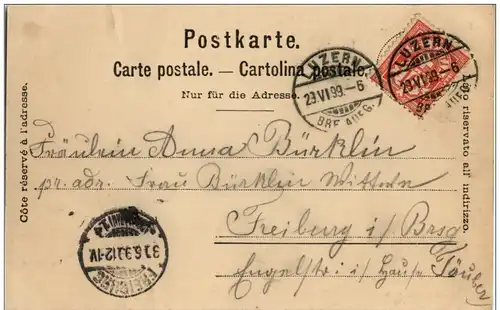 Postkarte.
Carte postale. — Cartolina postale.
Nur für die Adresse.
Côte réservé à l'adresse.
Lato riservato all' indirizzo.
LUZERN
29.VI.99.–6
BRF. AUFG.
LUZERN
29.VI.99.–6
Fräulein Anna Bürklin
pr. adr. Frau Bürklin Wittwe
Freiburg i/Brsg
Engelstr. i/ Hause Täuber
FREIBURG
30.6.99.12-1V.